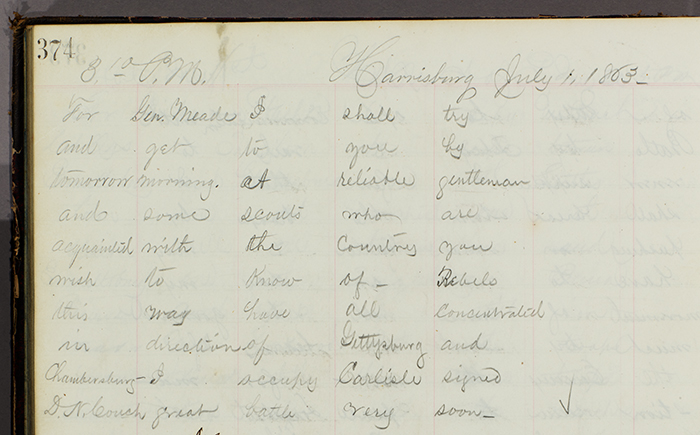 374
3 10 P.M. Harrisburg July 1, 1863-
For Gen. Meade I shall try
and get to you by
tomorrow morning. at reliable gentleman
and some scouts who are
acquainted with the Country you
wish to Know of - Rebels
this way have all consentrated
in direction of Gettysburg and
Chambersburg - I occupy Carlisle signed
D. N. Couch great battle very soon -